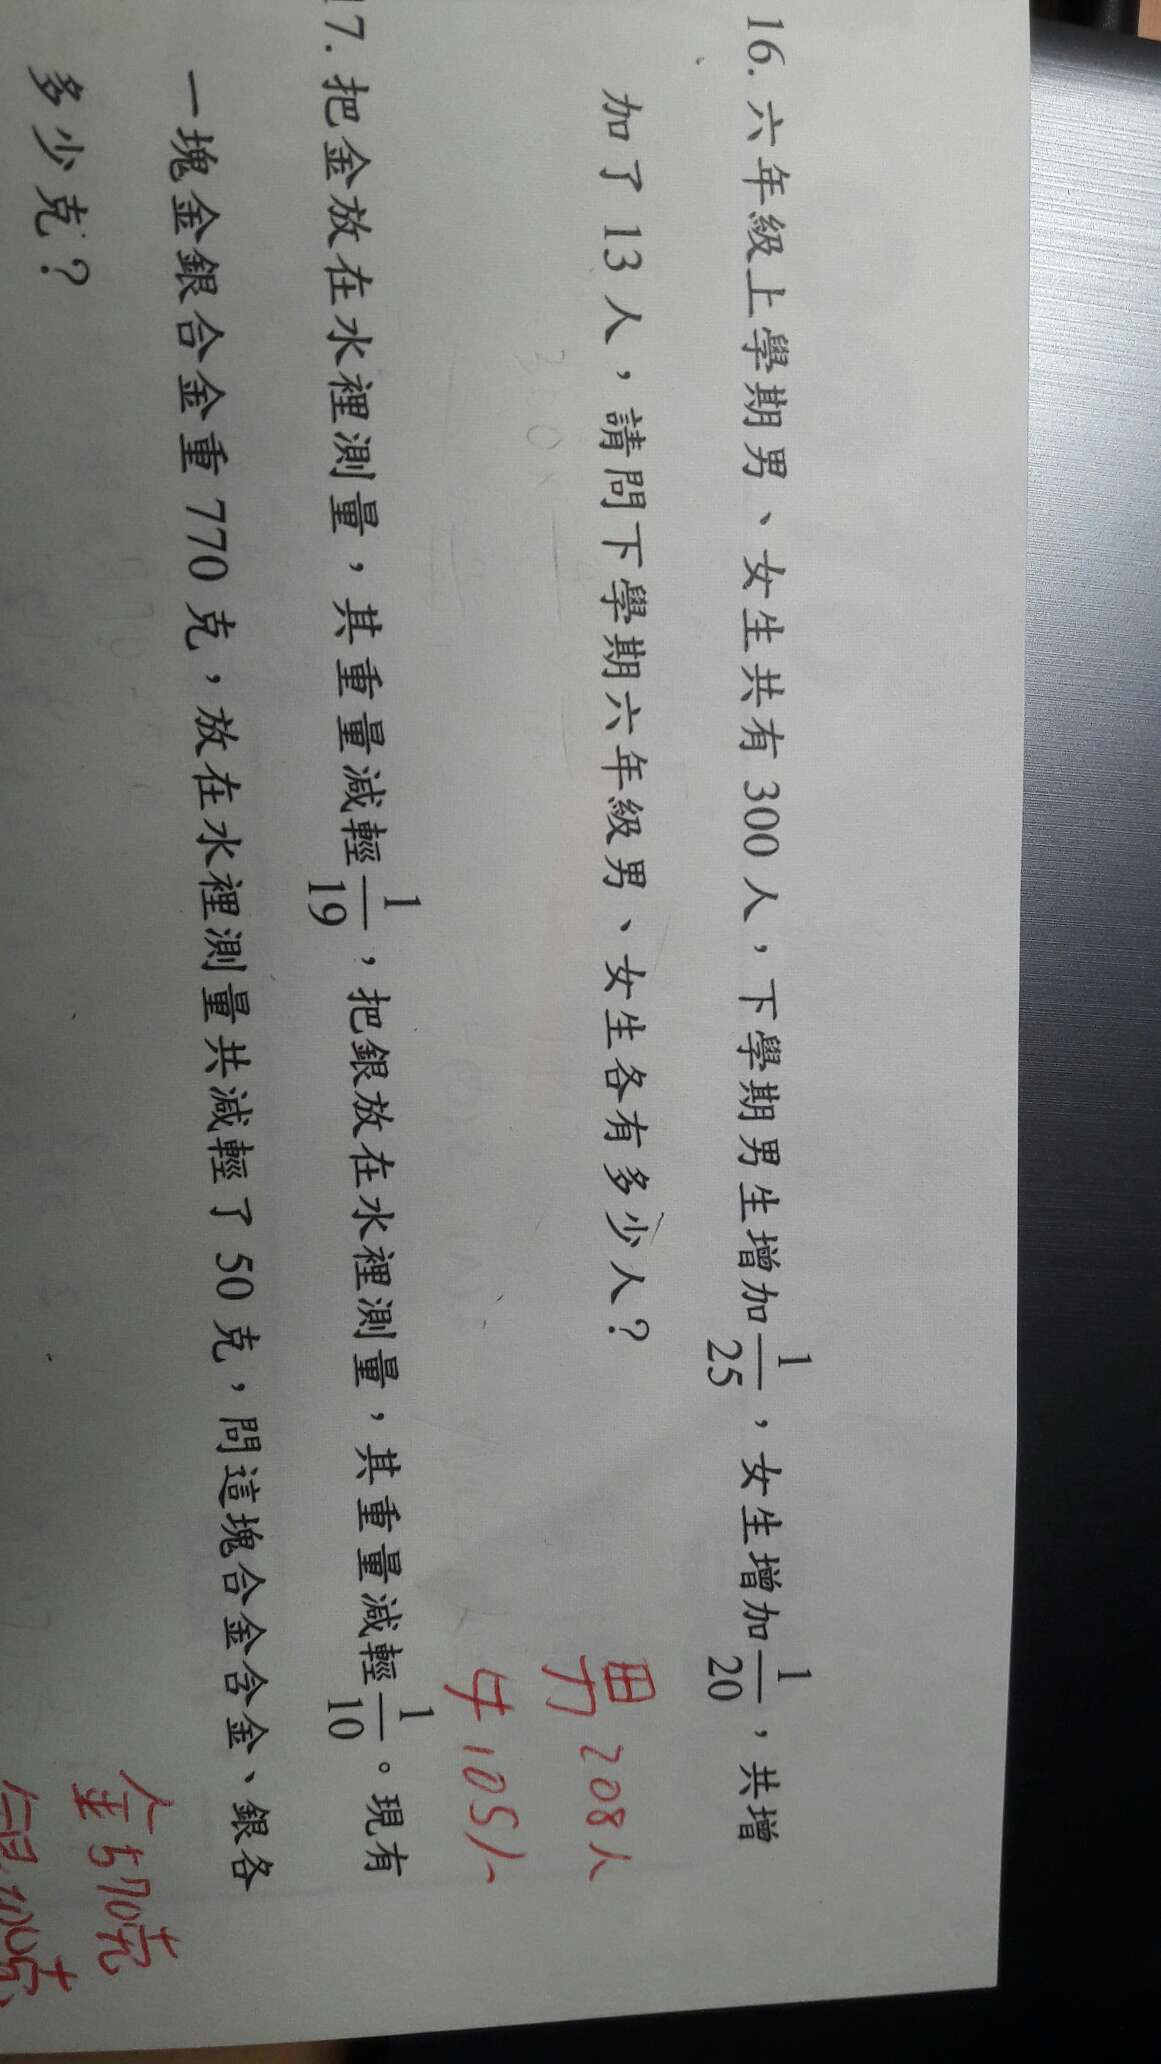 16. 六年級上學期男、女生共有 300 人，下學期男生增加 1/25，女生增加 1/20，共增
加了 13 人，請問下學期六年級男、女生各有多少人？
男 208人
女 105人
17. 把金放在水裡測量，其重量減輕 1/19，把銀放在水裡測量，其重量減輕 1/10。現有
一塊金銀合金重 770 克，放在水裡測量共減輕了 50 克，問這塊合金含金、銀各
多少克？
金570克
銀200克